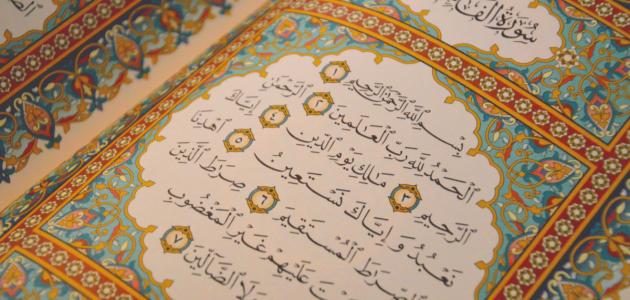 سُورَةُ الْفَا
بِسْمِ ٱللَّهِ ٱلرَّحْمَٰنِ ٱلرَّحِيمِ ١
ٱلْحَمْدُ لِلَّهِ رَبِّ ٱلْعَٰلَمِينَ ٢ ٱلرَّحْمَٰنِ
ٱلرَّحِيمِ ٣ مَٰلِكِ يَوْمِ ٱلدِّينِ ٤ إِيَّاكَ
نَعْبُدُ وَإِيَّاكَ نَسْتَعِينُ ٥ ٱهْدِنَا
ٱلصِّرَٰطَ ٱلْمُسْتَقِيمَ ٦ صِرَٰطَ ٱلَّذِينَ
عَلَيْهِمْ غَيْرِ ٱلْمَغْضُوبِ
وَلَا ٱلضَّآلِّينَ ٧